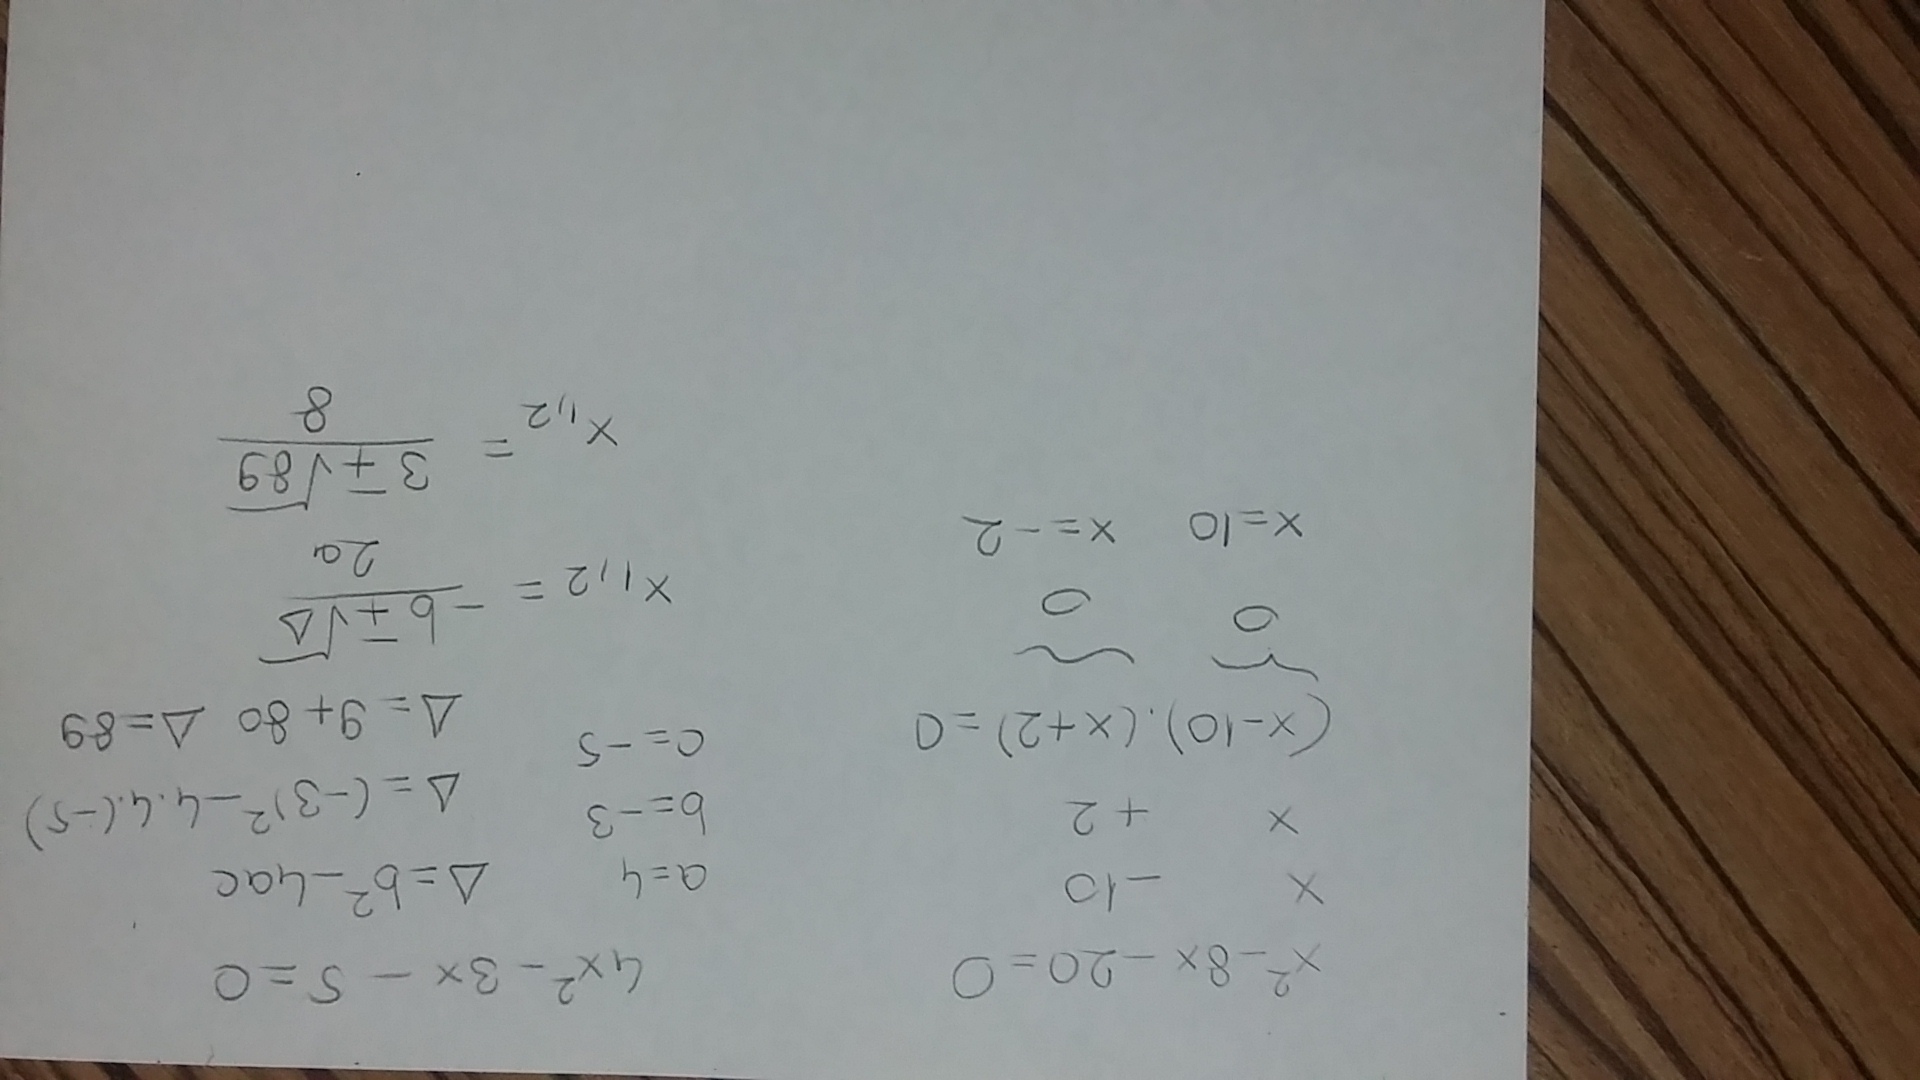 x² - 8x - 20 = 0
x - 10
x + 2
(x-10).(x+2) = 0
0 0
x=10 x=-2
4x² - 3x - 5 = 0
a=4 Δ=b²-4ac
b=-3 Δ=(-3)²-4.4.(-5)
c=-5 Δ=9+80 Δ=89
x1,2 = -b∓√Δ / 2a
x1,2 = 3∓√89 / 8